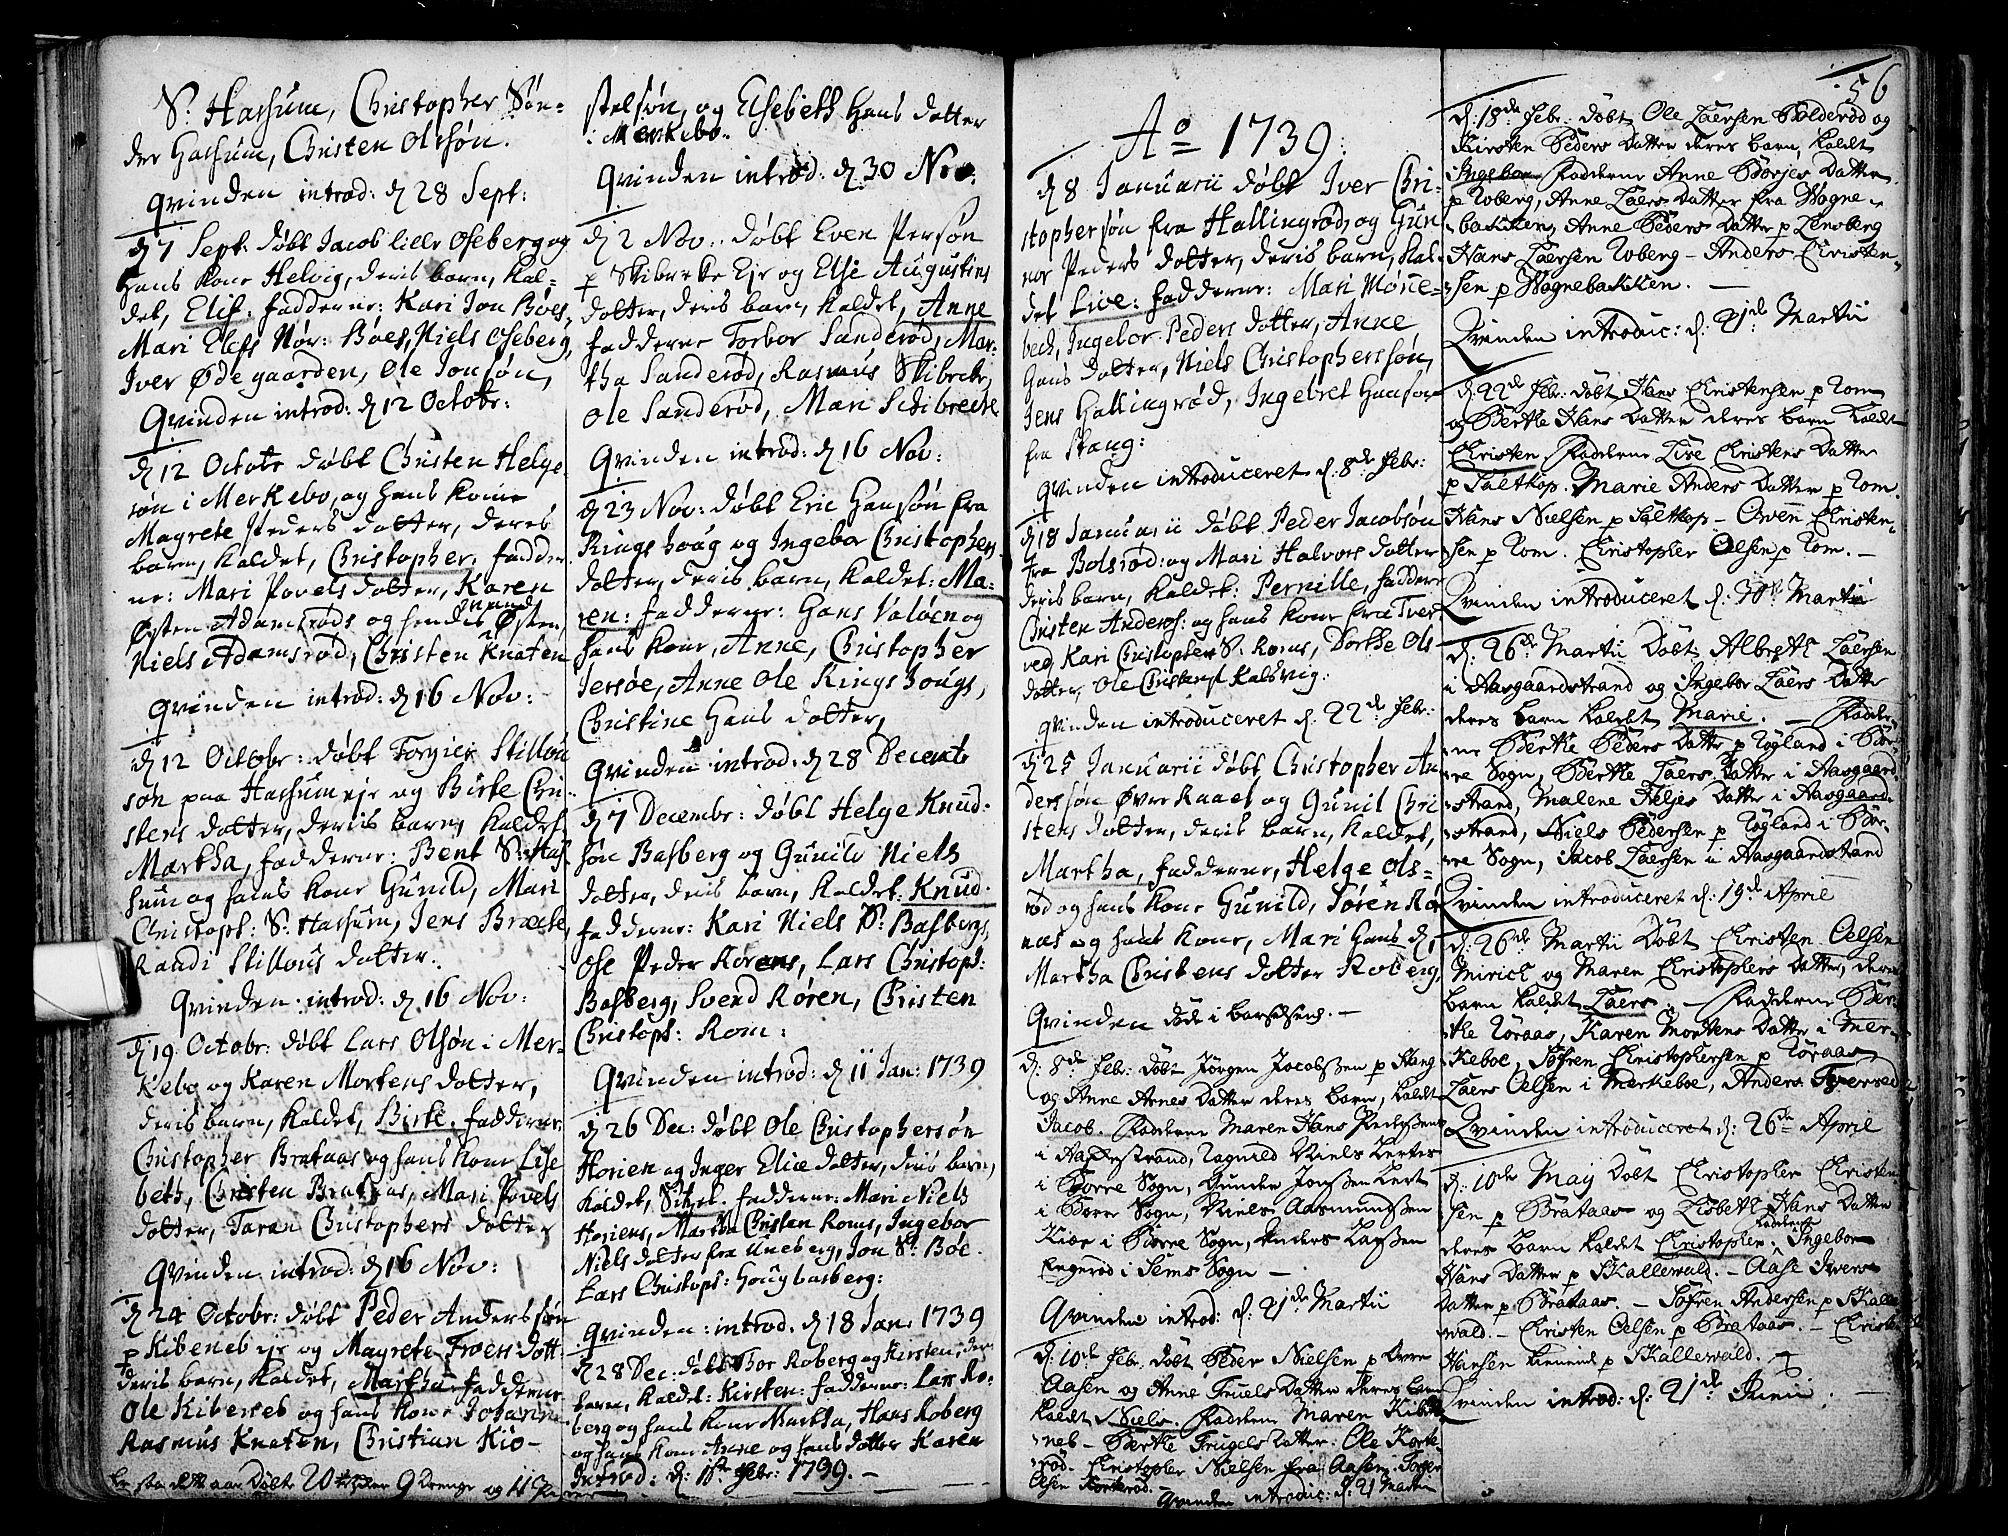 S. Hassum, Christopher Søn-
der Hassum, Christen Olsøn.
Qvinden introd: d 28 Sept:
d 7 Sept: døbt Jacob lille Oseberg og
hans kone Helvig, deris barn, kal-
det, Elis. faddere: Kari Jon Bøes,
Mari Elefs Nør: Bøes, Niels Oseberg,
Iver Ødegaarden, Ole Jonsøn,
Qvinden introd: d 12 Octobr:
d 12 Octobr døbt Christen Helge
søn i Merkebo, og hans kone
Magrete Peders dotter, deres
barn, kaldet, Christopher, fadde-
ne: Mari Povels dotter, Karen
Østen Adamsrøds og hendis mand Østen,
Niels Adamsrød, Christen Knaten
Qvinden introd: d 16 Nov:
d 12 Octobr: døbt Torgier Stillou
søn paa Hassumeje og Birte Chri-
stens dotter, deris barn, kaldet
Martha, faddere: Bent S: Has
sum og hans kone Gunild, Mari
Christoph: S: Hassum, Jens Bræcke,
Randi Stillous dotter.
Qvinden introd: d 16 Nov:
d 19 Octobr: døbt Lars Olsøn i Mer-
kebo og Karen Mortens dotter,
deris barn, kaldet, Birte. faddere:
Christopher Brataas og hans kone Lise
beth, Christen Brataas, Mari Povels
dotter, Taran Christophers dotter
Qvinden introd: d 16 Nov:
d 24 Octobr: døbt Peder Anders søn
p Kibeneb eje og Magrete Troers dott
deris barn, kaldet, Martha. faddere
Ole Kibeneb og hans kone Johanne
Rasmus Knaten, Christian Kio-
dette aar døbte 20 9 Drenge og 11 Piger
stelsøn, og Elsebeth Hans dotter
i Merkebo.
Qvinden introd: d 30 Nov:
d 2 Nov: døbt Even Persøn
p Skibrecke Eje og Else Augustins
dotter, deris barn, kaldet, Anne
faddere Torbor Sanderød, Mar-
tha Sanderød, Rasmus Skibreck,
Ole Sanderød, Mari Skibrecke
Qvinden introd: d 16 Nov:
d 23 Nov: døbt Eric Hansøn fra
Rings houg og Ingebor Christophers
dotter, deris barn, kaldet: Ma-
ren: faddere: Hans Valøen og
hans kone, Anne, Christopher
Jersøe, Anne Ole Rings hougs,
Christine Hans dotter,
Qvinden introd. d 28 Decemb
d 7 Decembr: døbt Helge Knud-
søn Basberg og Gunild Niels
dotter, deris barn, kaldet: Knud.
faddere: Kari Niels S: Basbergs,
Ose Peder Rørens, Lars Christoph:
Basberg, Svend Røren, Christen
Christoph: Rom:
Qvinden introd: d 11 Jan: 1739
d 26 Dec: døbt Ole Christophersøn
Horien og Inger Elice dotter, deris barn,
kaldet, Sibet. faddere: Mari Niels
Horiens, Martha Christen Roms, Ingebor
Niels dotter fra Uneberg, Jon S: Bøe.
Lars Christoph: Hougbasberg:
Qvinden: introd. d 18 Jan: 1739
d 28 Dec: døbt Thor Roberg og Kirsten, deris
barn, kaldet: Kirsten: faddere: Lars Ro-
berg og hans kone Martha, Hans Roberg
og hans kone Anne og hans dotter Karen
introd: d: 1ste Febr: 1739.
Ao 1739.
d 8 Januarii døbt Iver Chri-
stophersøn fra Hallingrød, og Gun
nor Peders dotter, deris barn, kal-
det Live: faddere: Mari Møne-
bech, Ingebor Peders dotter, Anne
Hans dotter, Niels Christopherssøn,
Jens Hallingrød, Ingebret Hansøn
fra Stang:
Qvinden introduceret d. 8de Febr:
d 18 Januarii døbt Peder Jacobsøn
fra Bolsrød: og Mari Halvors dotter
deris barn, kaldet: Pernille, faddere
Christen Anders: og hans kone fra Tver
ved Kari Christopher S: Roms, Dorthe Ols
dotter, Ole Christens: Kalsvig:
Qvinden introduceret d. 22de Febr:
d 25 Januarii døbt Christopher An
derssøn Øvre Raael og Gunil Chri
stens dotter, deris barn, kaldet,
Martha, faddere, Helge Ols-
rød og hans kone Gunild, Søren Rø
næs og hans kone, Mari Hans d,
Martha Christens dotter Roberg,
Qvinden døde i barselseng.
d. 8de Febr: døbt Jørgen Jacobssen p Stang
og Anne Arnes datter deres barn, kaldt
Jacob. Fadderne Maren Hans Pedersens
i Aasgestrand, Ragnild Niels Kertes
i Borre Sogn, Gunder Jonssen Kert
i Borre Sogn, Niels Aasmundssen
Kiær i Borre Sogn, Anders Larssen
Engerød i Sems Sogn
Qvinden introd: d. 21de Martii
d. 10de Febr: døbt Peder Nielsen p Øvre
Aasen og Anne Truels datter deres barn
kaldt Niels. Fadderne Maren Kibe
neb - Berthe Trugels datter. Ole Korte-
rød. Christopher Nielsen fra Aasen. Torger
Olsen Korterød.
Qvinden introduc: d: 21 Martii
56
d: 18de Febr. døbt Ole Laersen Bolderød og
Kirsten Peders datter deres barn, kaldt
Ingebor Fadderne Anne Børjes datter
p Roberg, Anne Laers datter fra Wogne-
backen, Anne Peders datter p Lensberg
Hans Laersen Roberg - Anders Christen-
sen p Wognebackken.
Qvinden introduc: d: 21de Martii
d. 22de Febr: døbt Hans Christensen p Rom
og Berthe Hans datter deres barn kaldt
Christen Fadderne Lise Christens datter
p Saltkop. Marie Anders datter p Rom.
Hans Nielsen p Saltkop - Owen Christen-
sen p Rom. Christopher Olsen p Rom.
Qvinden introduceret d: 30te Martii
d. 26de Martii døbt Albreth Laersen
i Aasgaardstrand og Ingebor Laers datter
deres barn kaldt Marie. Fadder-
ne Berthe Peders datter p Røgland i Bor-
re Sogn, Berthe Laers datter i Aasgaard
strand, Malene Heljes datter i Aasgaard-
strand, Niels Pedersen p Røgland i Bor-
re Sogn, Jacob Laersen i Aasgaardstrand
Qvinden introduceret d: 19de April
d. 26de Martii døbt Christen Oelsen
Mirich og Maren Christophers datter, deres
barn kaldt Laers. Fadderne Ber-
the Røraas, Karen Mortens datter i Mer-
keboe, Søfren Christophersen p Røraas
Laers Oelsen i Merkeboe, Anders Tverved
Qvinden introduceret d. 26de April
d. 10de May døbt Christopher Christen
sen p Brataas og Lisbeth Hans datter
deres barn kaldt Christopher. Fadderne Ingebor
Hans datter p Skallewald. - Aase Ivers
datter p Brataas. - Søfren Andersen p Skalle
wald. - Christen Oelsen p Brataas. - Christ
Hansen p Skallewald.
Qvinden introd: d. 21de Junii